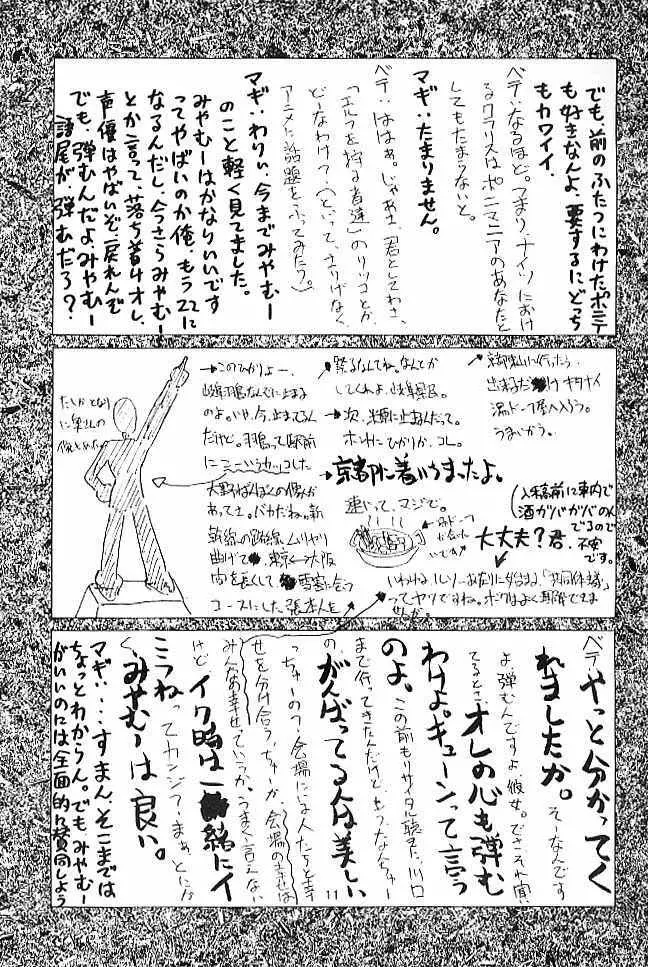 でも、前のふたつにわけたポニテ
も好きなんよ、要するにどっち
もカワイイ。
ベテ:なるほど。つまり、ナイツにおけ
るクラリスはポニマニアのあなたと
してもたまらないと。
マギ:たまりません。
ベテ:ははぁ。じゃあさ、君としてわさ、
「エルフを狩る者達」のリツコとか、
どーなわけ?(といって、さりげなく
アニメに話題をふってみたり。)
マギ:わりぃ、今までみやむー
のこと軽く見てました。
みやむーはかなりいいです
ってやばいのか俺、もう22に
なるんだし、今さらみやむー
とか言って、落ち着けオレ、
声優はやばいぞ、戻れんぞ
でも、弾むんだよみやむー
語尾が弾むだろ?
京都駅出て行ったら、
うまいかう。
してくれよ、岐阜県民。
→次、米原に止まるんだって。
ホントにひかりか、コレ。
→京都に着いちまったよ。
→このひかりよー、
岐阜羽島なんぞに止まる
のよ。いや、今、止まってるん
だけど。羽島って駅前
あってよ。バカだね。新
幹線の路線、ムリヤリ
曲げて 東京↔大阪
間を長くして 雪害に会う
コースにした張本人を
(入稿前に車内で
酒ガバガバのん
でるので
不安
です。
大丈夫?君、
速いって、マジで。
いわゆる「共同体場」
ってヤツですね。ボクはよく理解できま
せんが。
ベテ:やっと分かってく
れましたか。そーなんです
よ、弾むんですよ、彼女。でさ、それ聞い
てるとさ、オレの心も弾む
わけよ。キューンって言う
のよ、この前もリサイタル聴きに川口
まで行ってきたんだけど、もうなんちゅー
の、がんばってる人は美しい
っちゅーの?、会場にいる人たちと幸
せを分け合うっちゅーか、会場の幸せは
みんなの幸せっていうか、うまく言えない
けど イク時は一緒にイ
こうねってカンジィー。まぁ、とにか
く、みやむーは良い。
マギ:・・・すまん、そこまでは
ちょっとわからん。でもみやむー
がいいのには全面的に賛同しよう